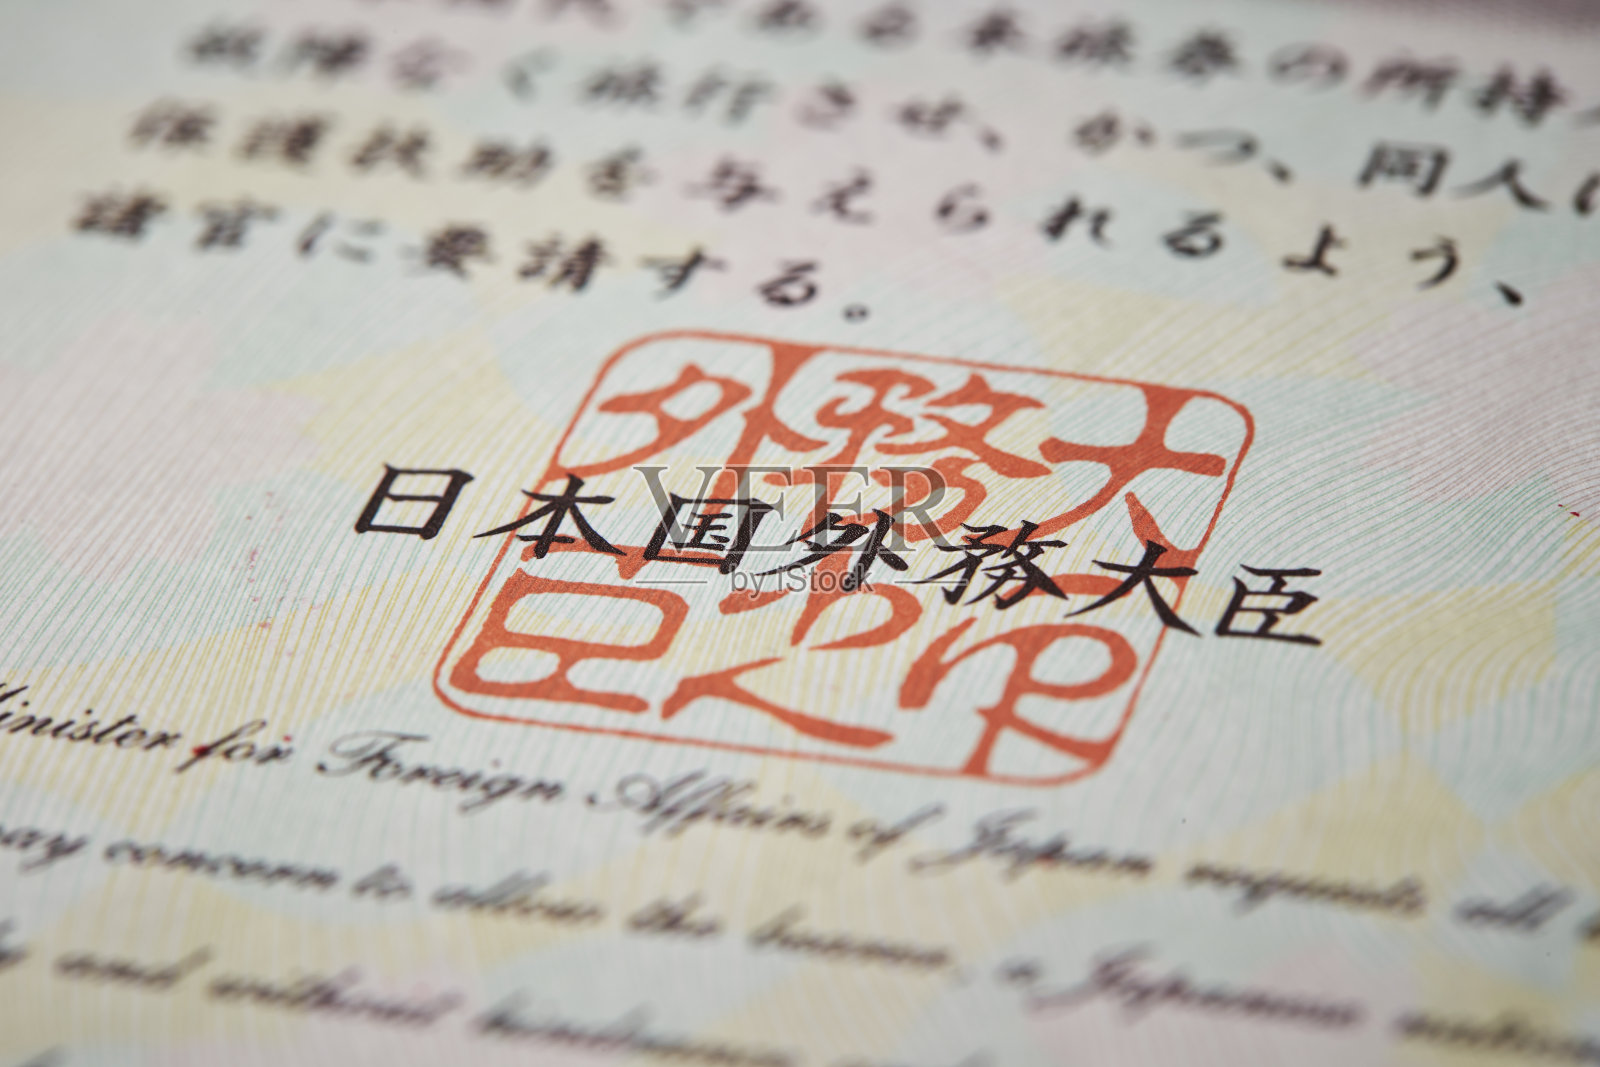 である本旅券の所持人
故障なく旅行させ、かつ、同人に
保護扶助を与えられるよう、
諸官に要請する。
日本国外務大臣
VEER
by iStock
Minister for Foreign Affairs of Japan requests all
may concern to allow the bearer, a Japanese
and without hindrance